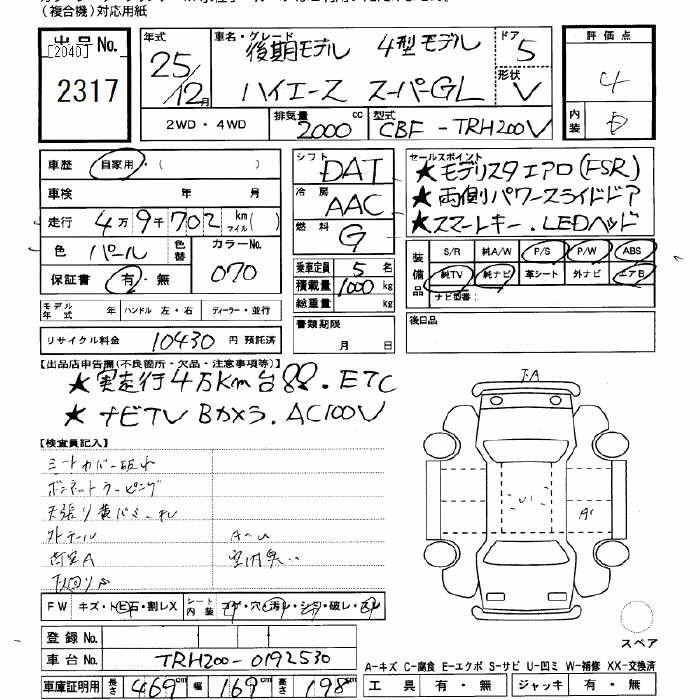 (複合機)対応用紙
出品No. [2040] 2317
年式 25/12月
車名・グレード 後期モデル 4型モデル
ハイエース スーパーGL
ドア 5
形状 V
評価点 4
内装
2WD・4WD
排気量 2000 cc
型式 CBF-TRH200V
車歴 自家用・( )
車検 年 月 号
走行 4万9千702 km マイル( )
色 パール 色替 カラーNo. 070
保証書 有・無
モデル年式 年 ハンドル 左・右 ディーラー・並行
リサイクル料金 10430 円 預託済
シフト DAT
冷房 AAC
燃料 G
乗車定員 5 名
積載量 1000 kg
総重量 kg
書類期限
月 日
セールスポイント
★モデリスタエアロ(FSR)
★両側パワースライドドア
★スマートキー.LEDヘッド
装備品 S/R 純A/W P/S P/W ABS
純TV 純ナビ 革シート 外ナビ エアB
ナビ型番:
後日品
【出品店申告欄(不良箇所・欠品・注意事項等)】
★実走行4万Km台!!.ETC
★ナビTV Bカメラ.AC100V
【検査員記入】
シートカバー破れ
ボンネットラッピング
天張り
外
下回りサ
A〜U
室内
FW キズ・ト・石・割レX シート内装 コゲ・穴・汚レ・シミ・破レ・スレ
登録No.
車台No. TRH200-0192530
車庫証明用 長さ 469 cm 幅 169 cm 高さ 198 cm
スペア
A-キズ C-腐食 E-エクボ S-サビ U-凹ミ W-補修 XX-交換済
工具 有・無 ジャッキ 有・無